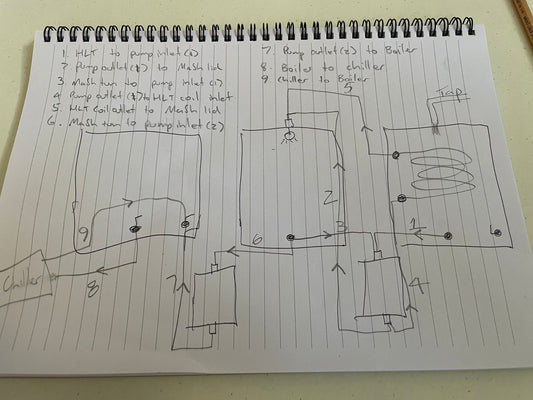 1. HLT to pump inlet(1)
2 Pump outlet(1) to Mash lid
3 Mash tun to pump inlet (1)
4 Pump outlet(1) to HLT coil inlet
5 HLT coil outlet to Mash lid
6. Mash tun to pump inlet (2)
7. Pump outlet(2) to Boiler
8. Boiler to chiller
9 Chiller to Boiler
5
Tap
2
3
1
6
4
9
7
8
Chiller